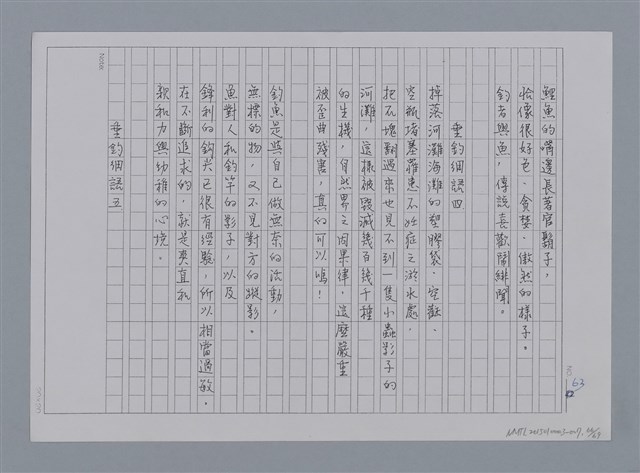 鯉魚的嘴邊長著官鬍子，
恰像很好色、貪婪、傲然的樣子。
釣者與魚，傳說喜歡鬧緋聞。
垂釣細語四
掉落河灘海灘的塑膠袋、空罐、
空瓶堵塞罹患不妊症之游水處，
把石塊翻過來也見不到一隻小蟲影子的
河灘，這樣被毀滅幾百幾千種
的生機，自然界之因果律，這麼嚴重
被歪曲殘害，真的可以嗎！
釣魚是與自己做無奈的活動，
無標的物，又不見對方的蹤影。
魚對人和釣竿的影子，以及
鋒利的鈎尖已很有經驗，所以相當過敏。
在不斷追求的，就是爽直和
親和力與幼稚的心境。
垂釣細語五
Note:
63